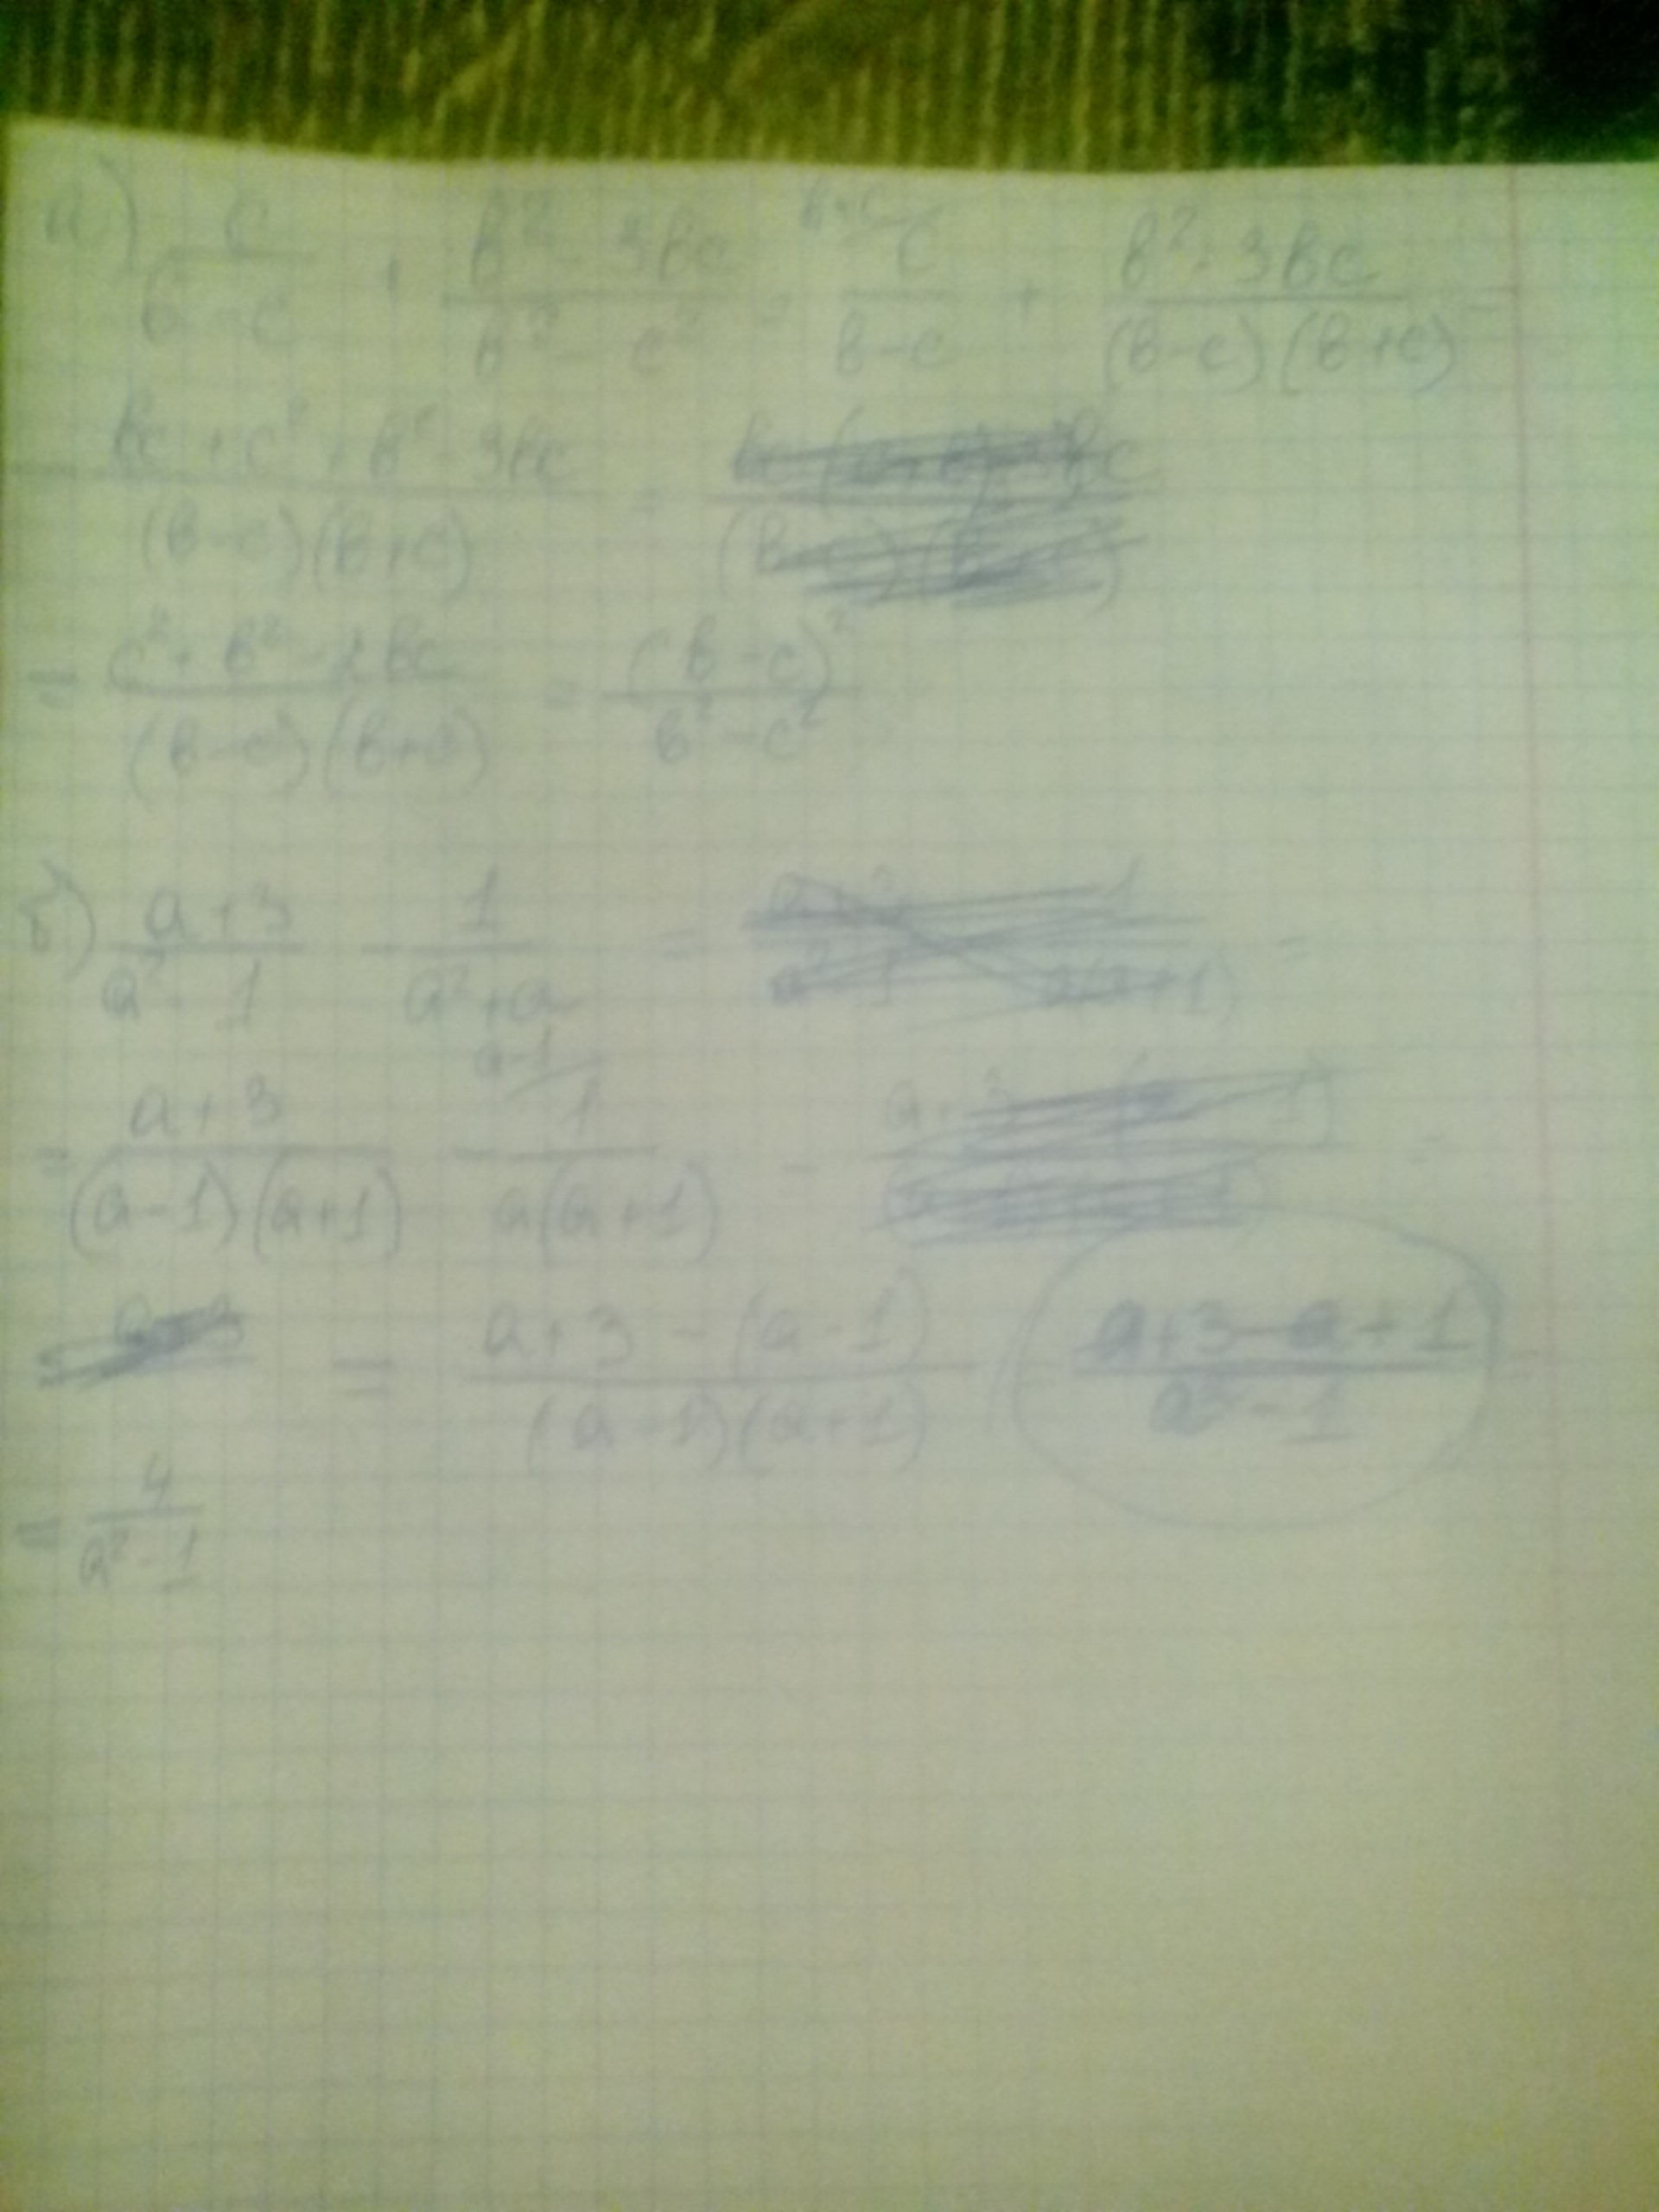 а) c/(b-c) + (b² - 3bc)/(b² - c²) = b+c/ c/(b-c) + (b² - 3bc)/((b-c)(b+c)) =
(bc + c² + b² - 3bc)/((b-c)(b+c)) =
= (c² + b² - 2bc)/((b-c)(b+c)) = (b-c)²/(b² - c²)
б) (a+3)/(a² - 1) - 1/(a² + a) =
= (a+3)/((a-1)(a+1)) - a-1/ 1/(a(a+1)) =
= (a+3 - (a-1))/((a-1)(a+1)) (a+3-a+1)/(a² - 1) =
= 4/(a² - 1)